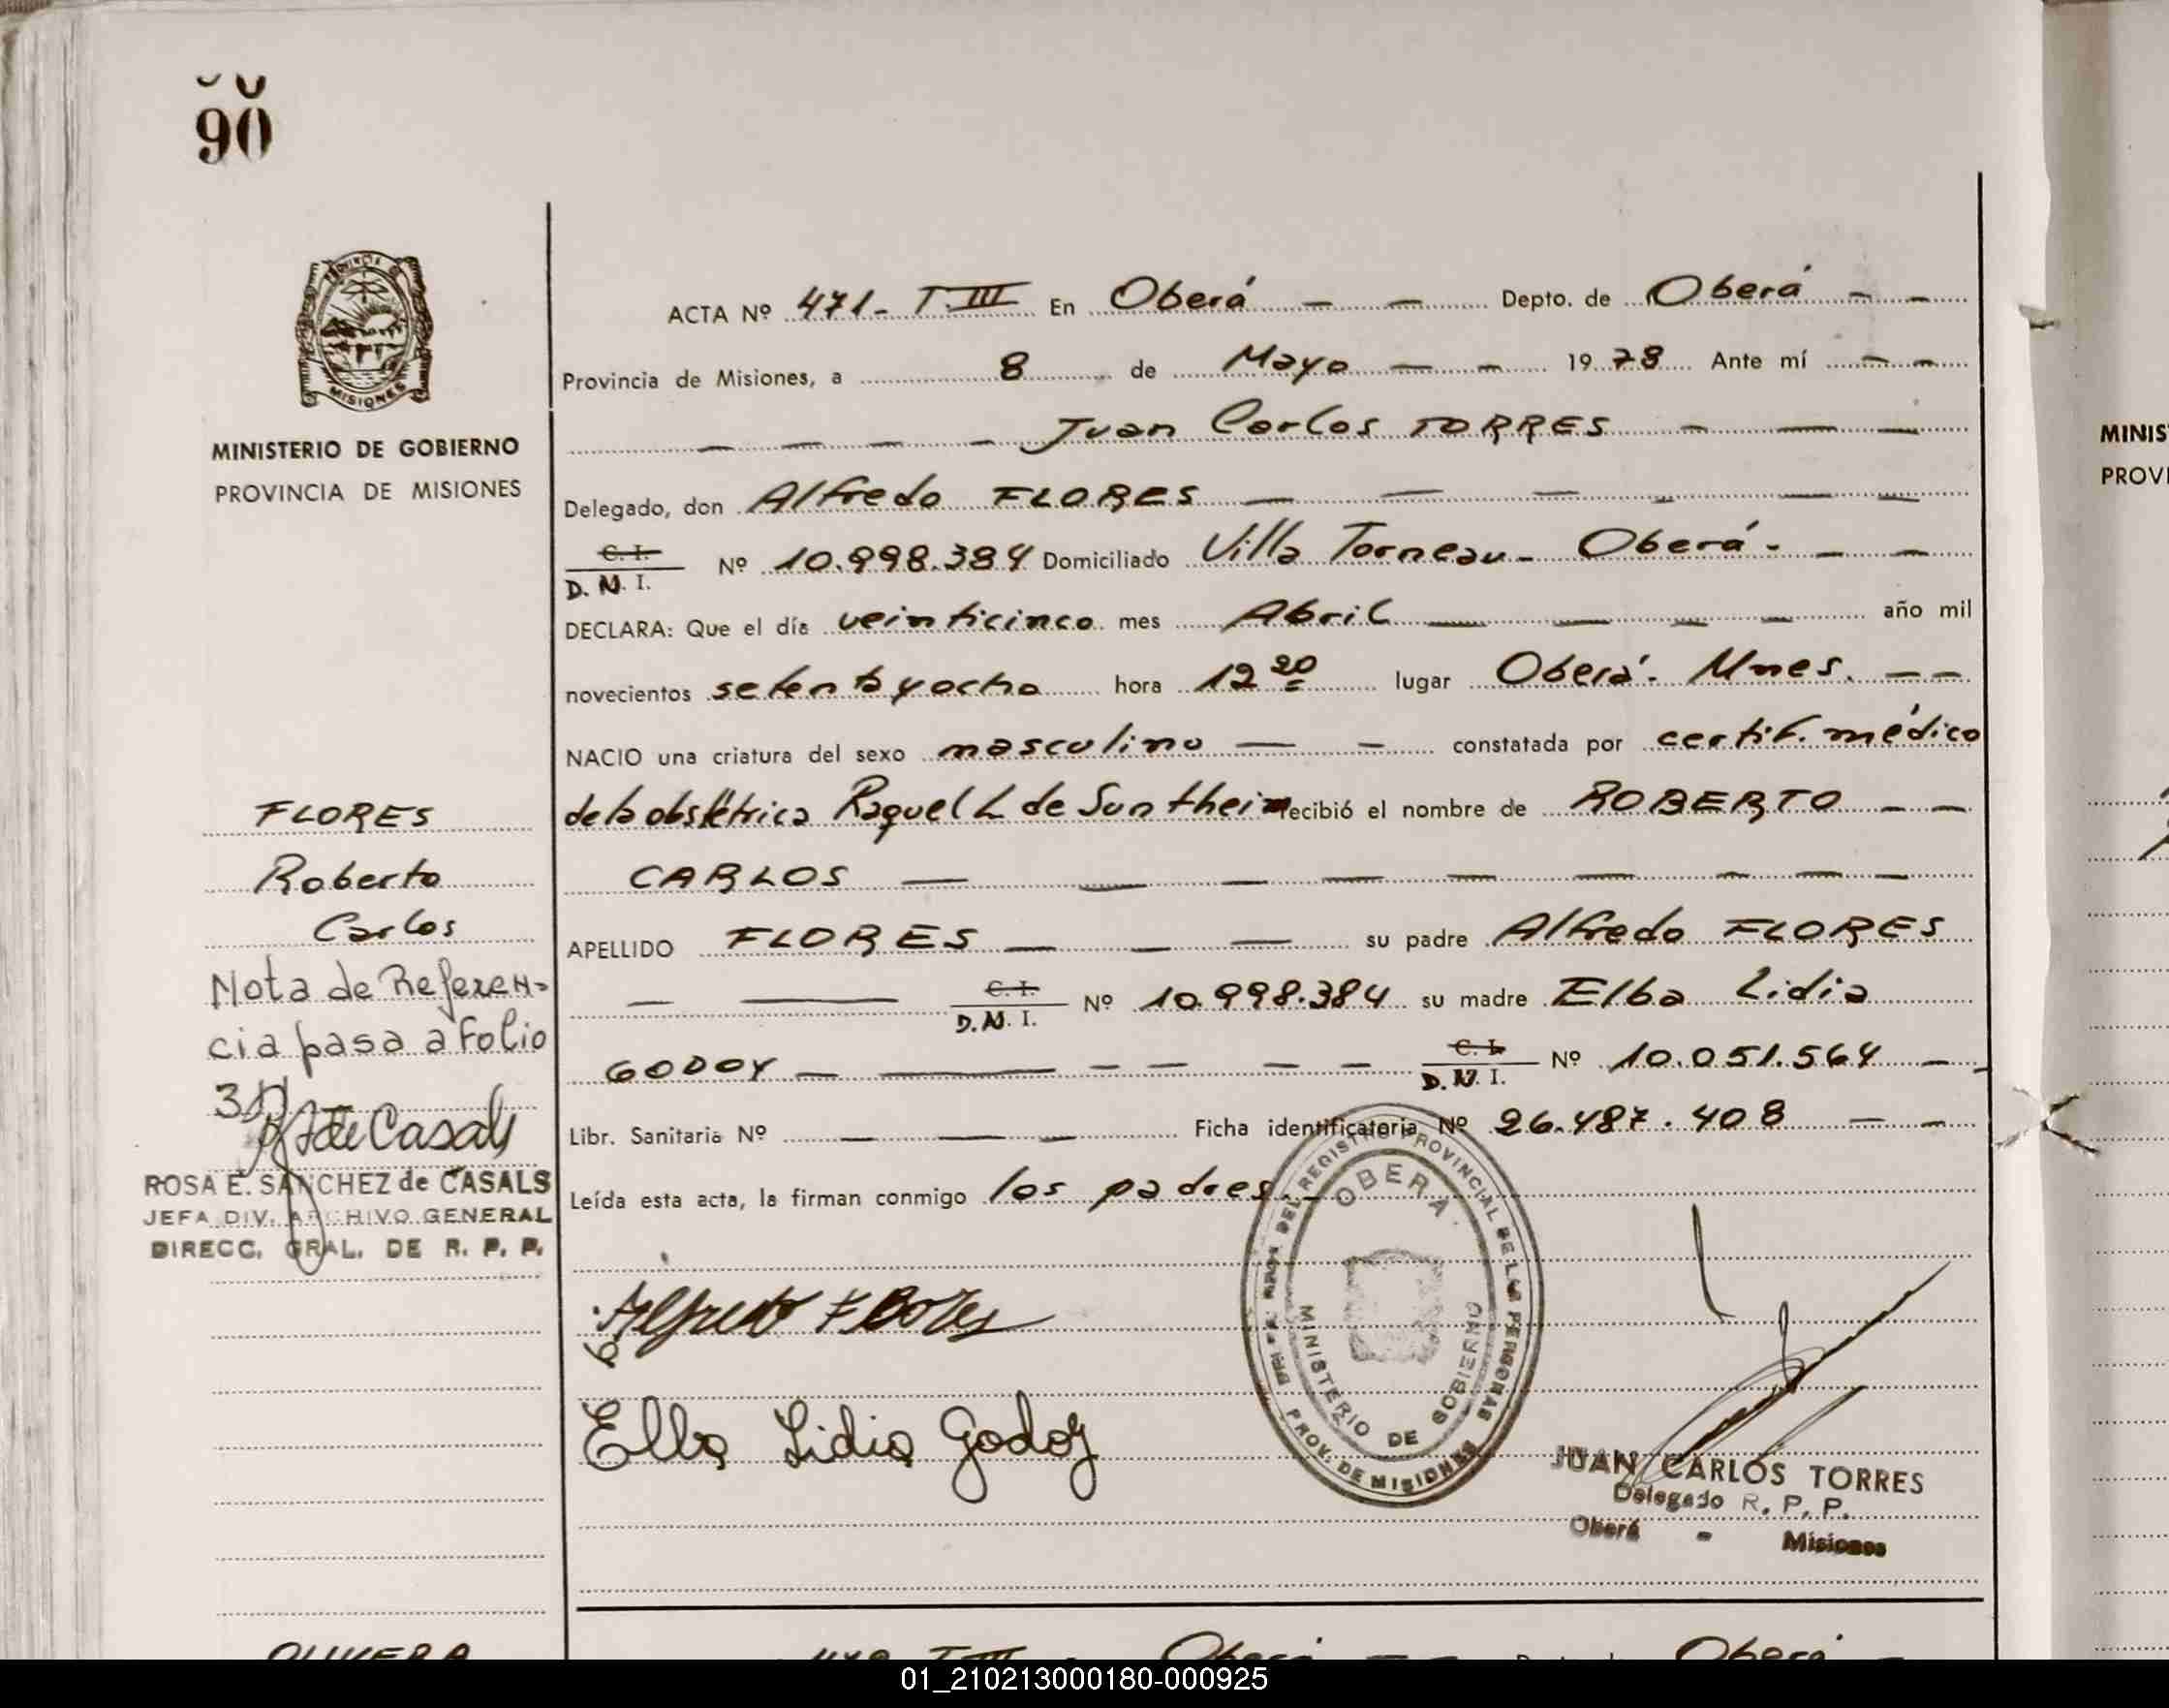 90
PROVINCIA DE
MISIONES
MINISTERIO DE GOBIERNO
PROVINCIA DE MISIONES
ACTA Nº 471- T.III En Oberá — — Depto. de Oberá - -
Provincia de Misiones, a 8 de Mayo — - 1978 Ante mí — -
— — — - Juan Carlos TORRES - — —
Delegado, don Alfredo FLORES — — — - — —
C. I.
D. N. I. Nº 10.998.384 Domiciliado Villa Torneau - Oberá - — —
DECLARA: Que el día veinticinco mes Abril — — — — año mil
novecientos setenta y ocho hora 12 20 lugar Oberá. Mnes. — —
NACIO una criatura del sexo masculino — - constatada por certif. médico
de la obstétrica Raquel L de Suntheim recibió el nombre de ROBERTO — —
CARLOS — — — — — — — — —
APELLIDO FLORES — — — su padre Alfredo FLORES
— — C. I.
D. N. I. Nº 10.998.384 su madre Elba Lidia
GODOY — — - - - - C. I.
D. N. I. Nº 10.051.564 —
Libr. Sanitaria Nº — — — Ficha identificatoria Nº 26.487.408 — —
Leída esta acta, la firman conmigo los padres. -
FLORES
Roberto
Carlos
Nota de Referen-
cia pasa a Folio
de Casals
ROSA E. SANCHEZ de CASALS
JEFA DIV. ARCHIVO GENERAL
DIRECC. GRAL. DE R. P. P.
Alfredo Flores
Elba Lidia Godoy
DEL REGISTRO PROVINCIAL DE LAS PERSONAS
OBERA
MINISTERIO DE GOBIERNO
PROV. DE MISIONES
JUAN CARLOS TORRES
Delegado R. P. P.
Oberá - Misiones
OLIVERA
Oberá
Oberá -
MINIS
PROVI
01_210213000180-000925